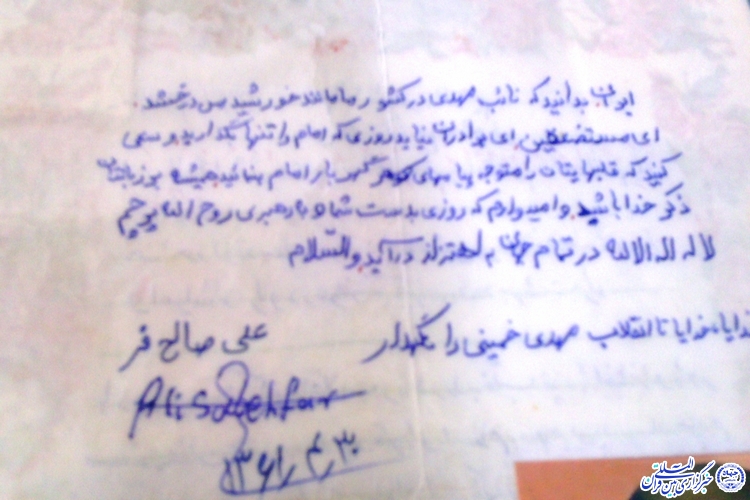 بدانید که نائب مهدی در کشور ما مانند خورشید می‌درخشد.
ای مستضعفین، ای برادران نیاید روزی که امام را تنها بگذارید و سعی
کنید که قلبهایتان را متوجه پیامهای گوهر بار امام بنمائید همیشه بر زبانتان
ذکر خدا باشد و امیدوارم که روزی بدست شما و به رهبری روح الله پرچم
لا اله الا الله در تمام جهان به اهتزاز درآید والسلام
خدایا خدایا تا انقلاب مهدی خمینی را نگهدار
علی صالح فر
Ali Salehfar
۱۳۶۱٫۴٫۳۰
خبرگزاری بین المللی قرآن